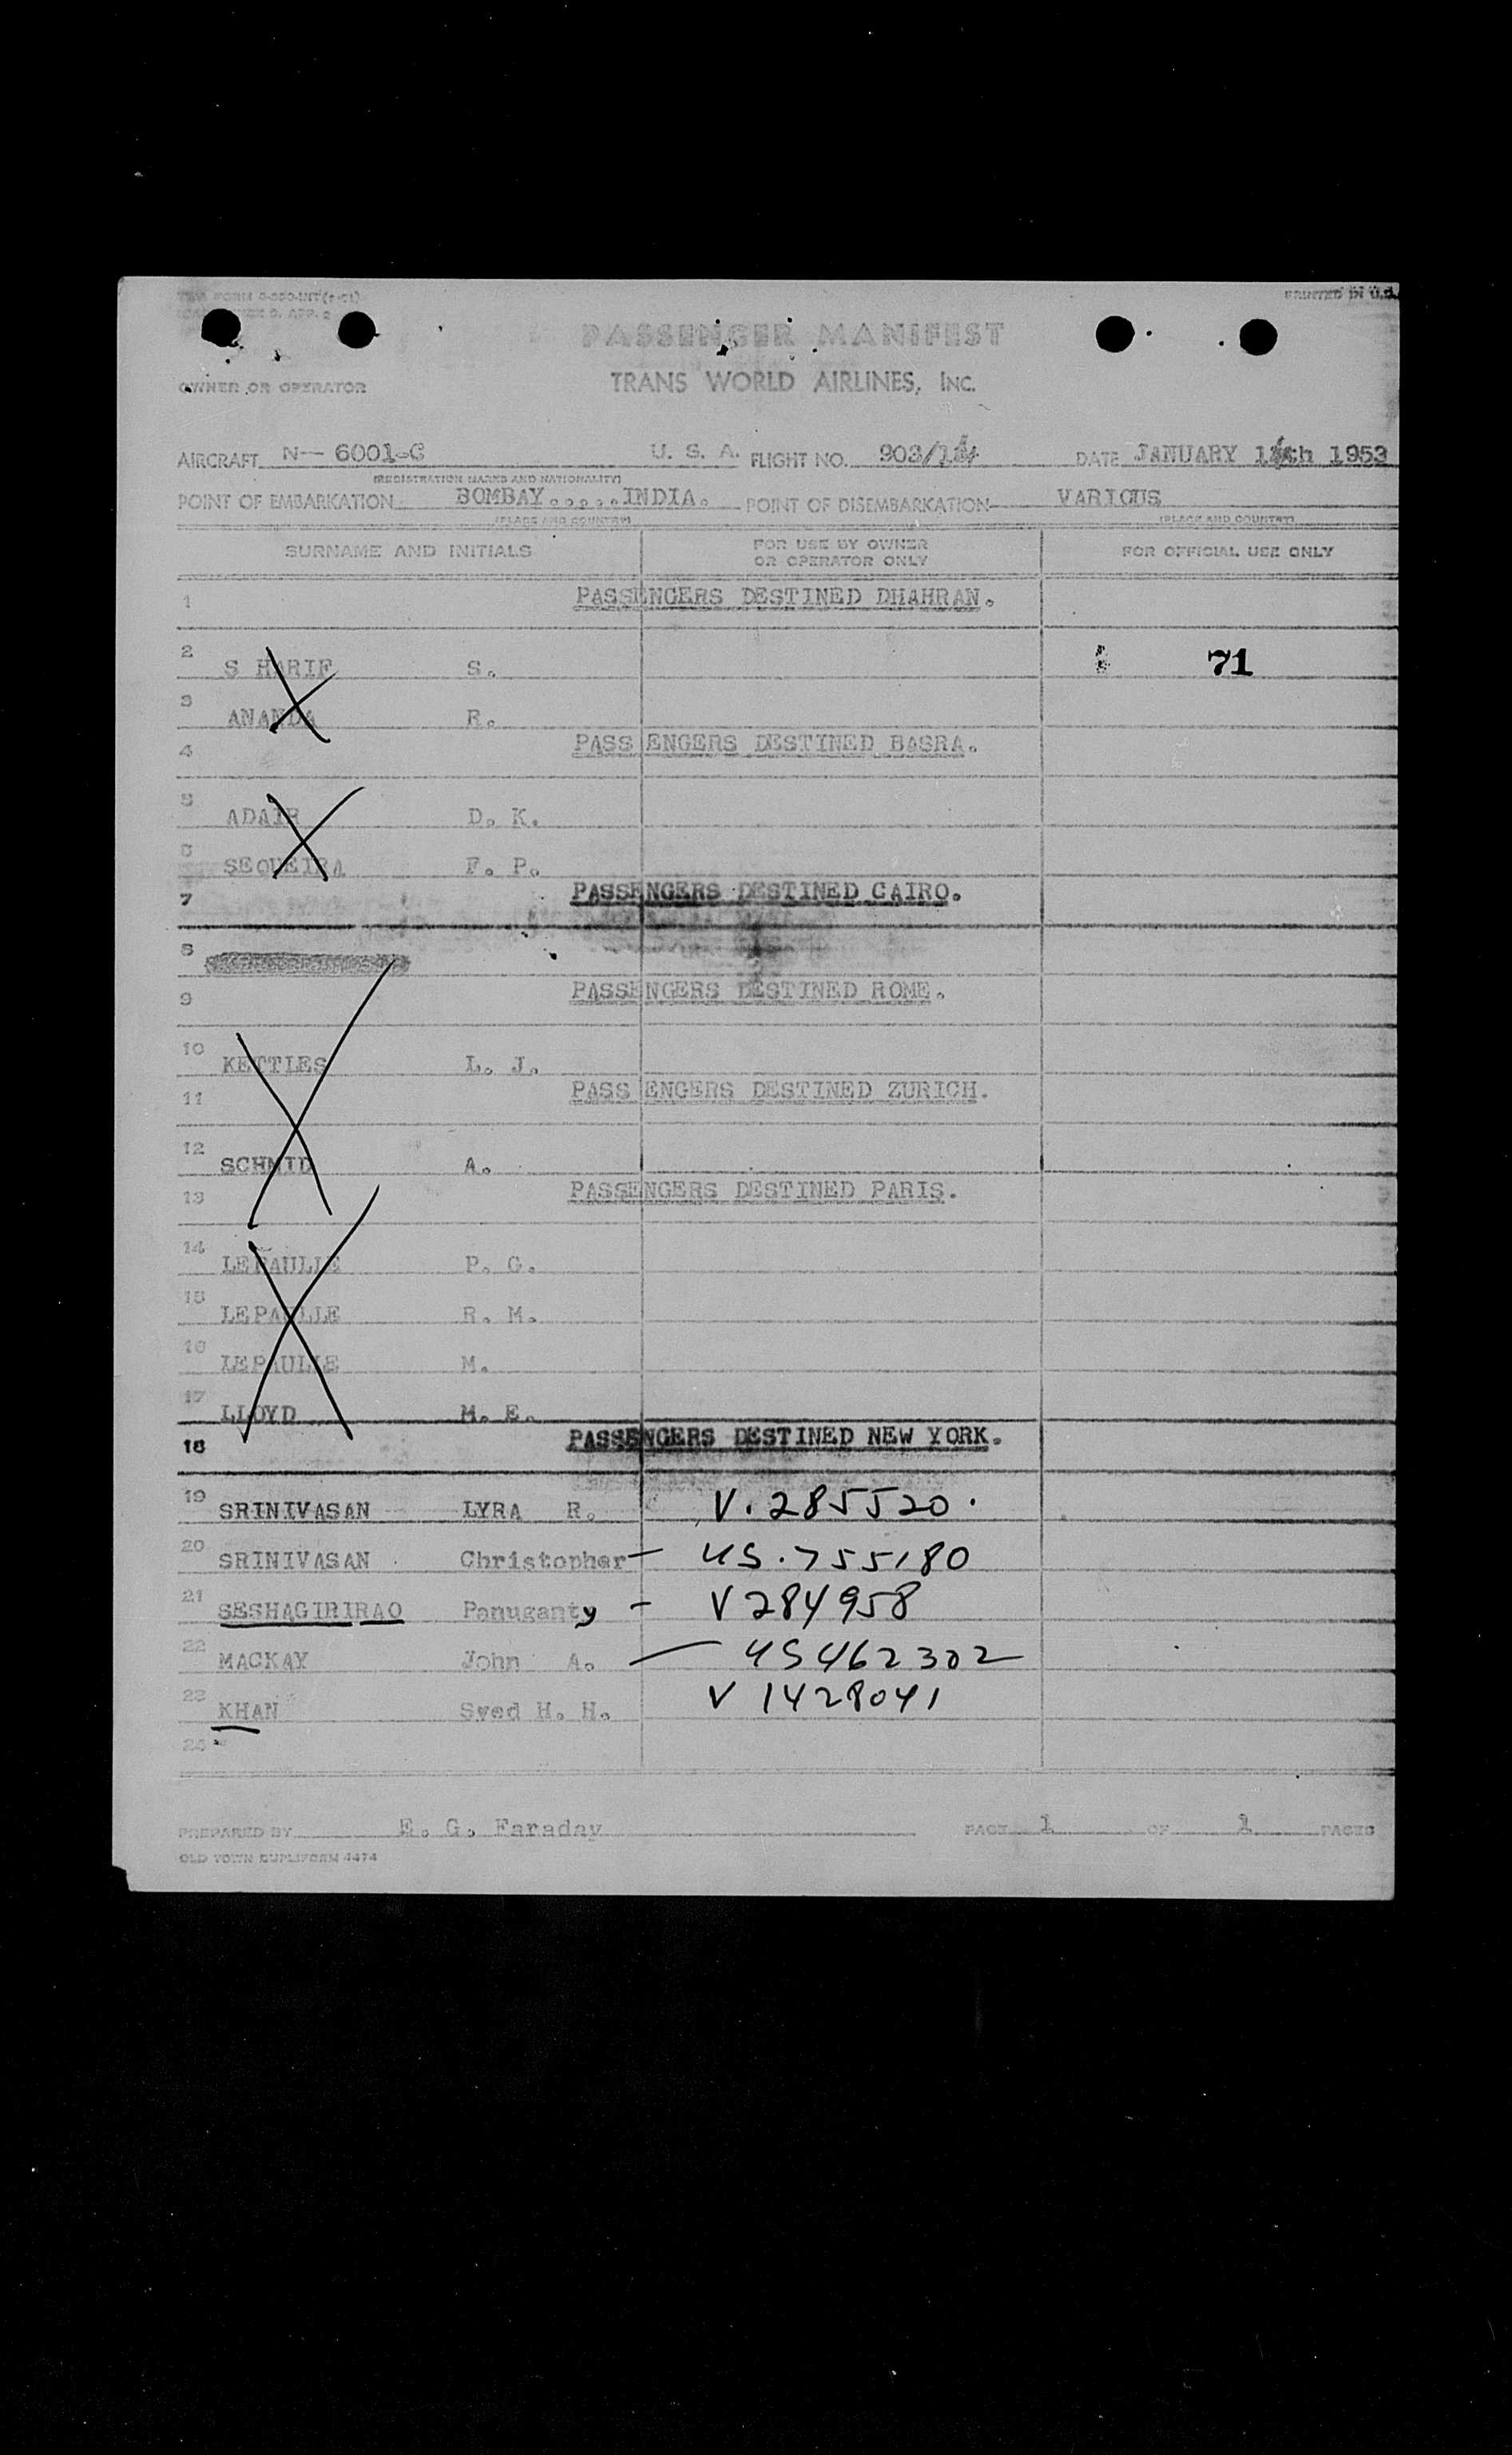 PRINTED IN U.S.
PASSENGER MANIFEST
OWNER OR OPERATOR
TRANS WORLD AIRLINES, INC.
AIRCRAFT N-- 6001-C U. S. A. FLIGHT NO. 903/14 DATE JANUARY 14th 1953
(REGISTRATION MARKS AND NATIONALITY)
POINT OF EMBARKATION BOMBAY.....INDIA. POINT OF DISEMBARKATION VARIOUS
(PLACE AND COUNTRY) (PLACE AND COUNTRY)
SURNAME AND INITIALS FOR USE BY OWNER OR OPERATOR ONLY FOR OFFICIAL USE ONLY
1 PASSENGERS DESTINED DHAHRAN.
2 S HARIF S. 71
3 ANANDA R.
4 PASSENGERS DESTINED BASRA.
5 ADAIR D. K.
6 SEQUEIRA F. P.
7 PASSENGERS DESTINED CAIRO.
8
9 PASSENGERS DESTINED ROME.
10 KETTLES L. J.
11 PASSENGERS DESTINED ZURICH.
12 SCHMID A.
13 PASSENGERS DESTINED PARIS.
14 LEPAULLE P. G.
15 LEPAULLE R. M.
16 LEPAULLE M.
17 LLOYD M. E.
18 PASSENGERS DESTINED NEW YORK.
19 SRINIVASAN LYRA R. V. 285520.
20 SRINIVASAN Christopher - US. 755180
21 SESHAGIRIRAO Panuganty - V 284958
22 MACKAY John A. - US 462302
23 KHAN Syed H. H. V 1428041
24
PREPARED BY E. G. Faraday PAGE 1 OF 1 PAGES
OLD TOWN DUPLIFORM 4474